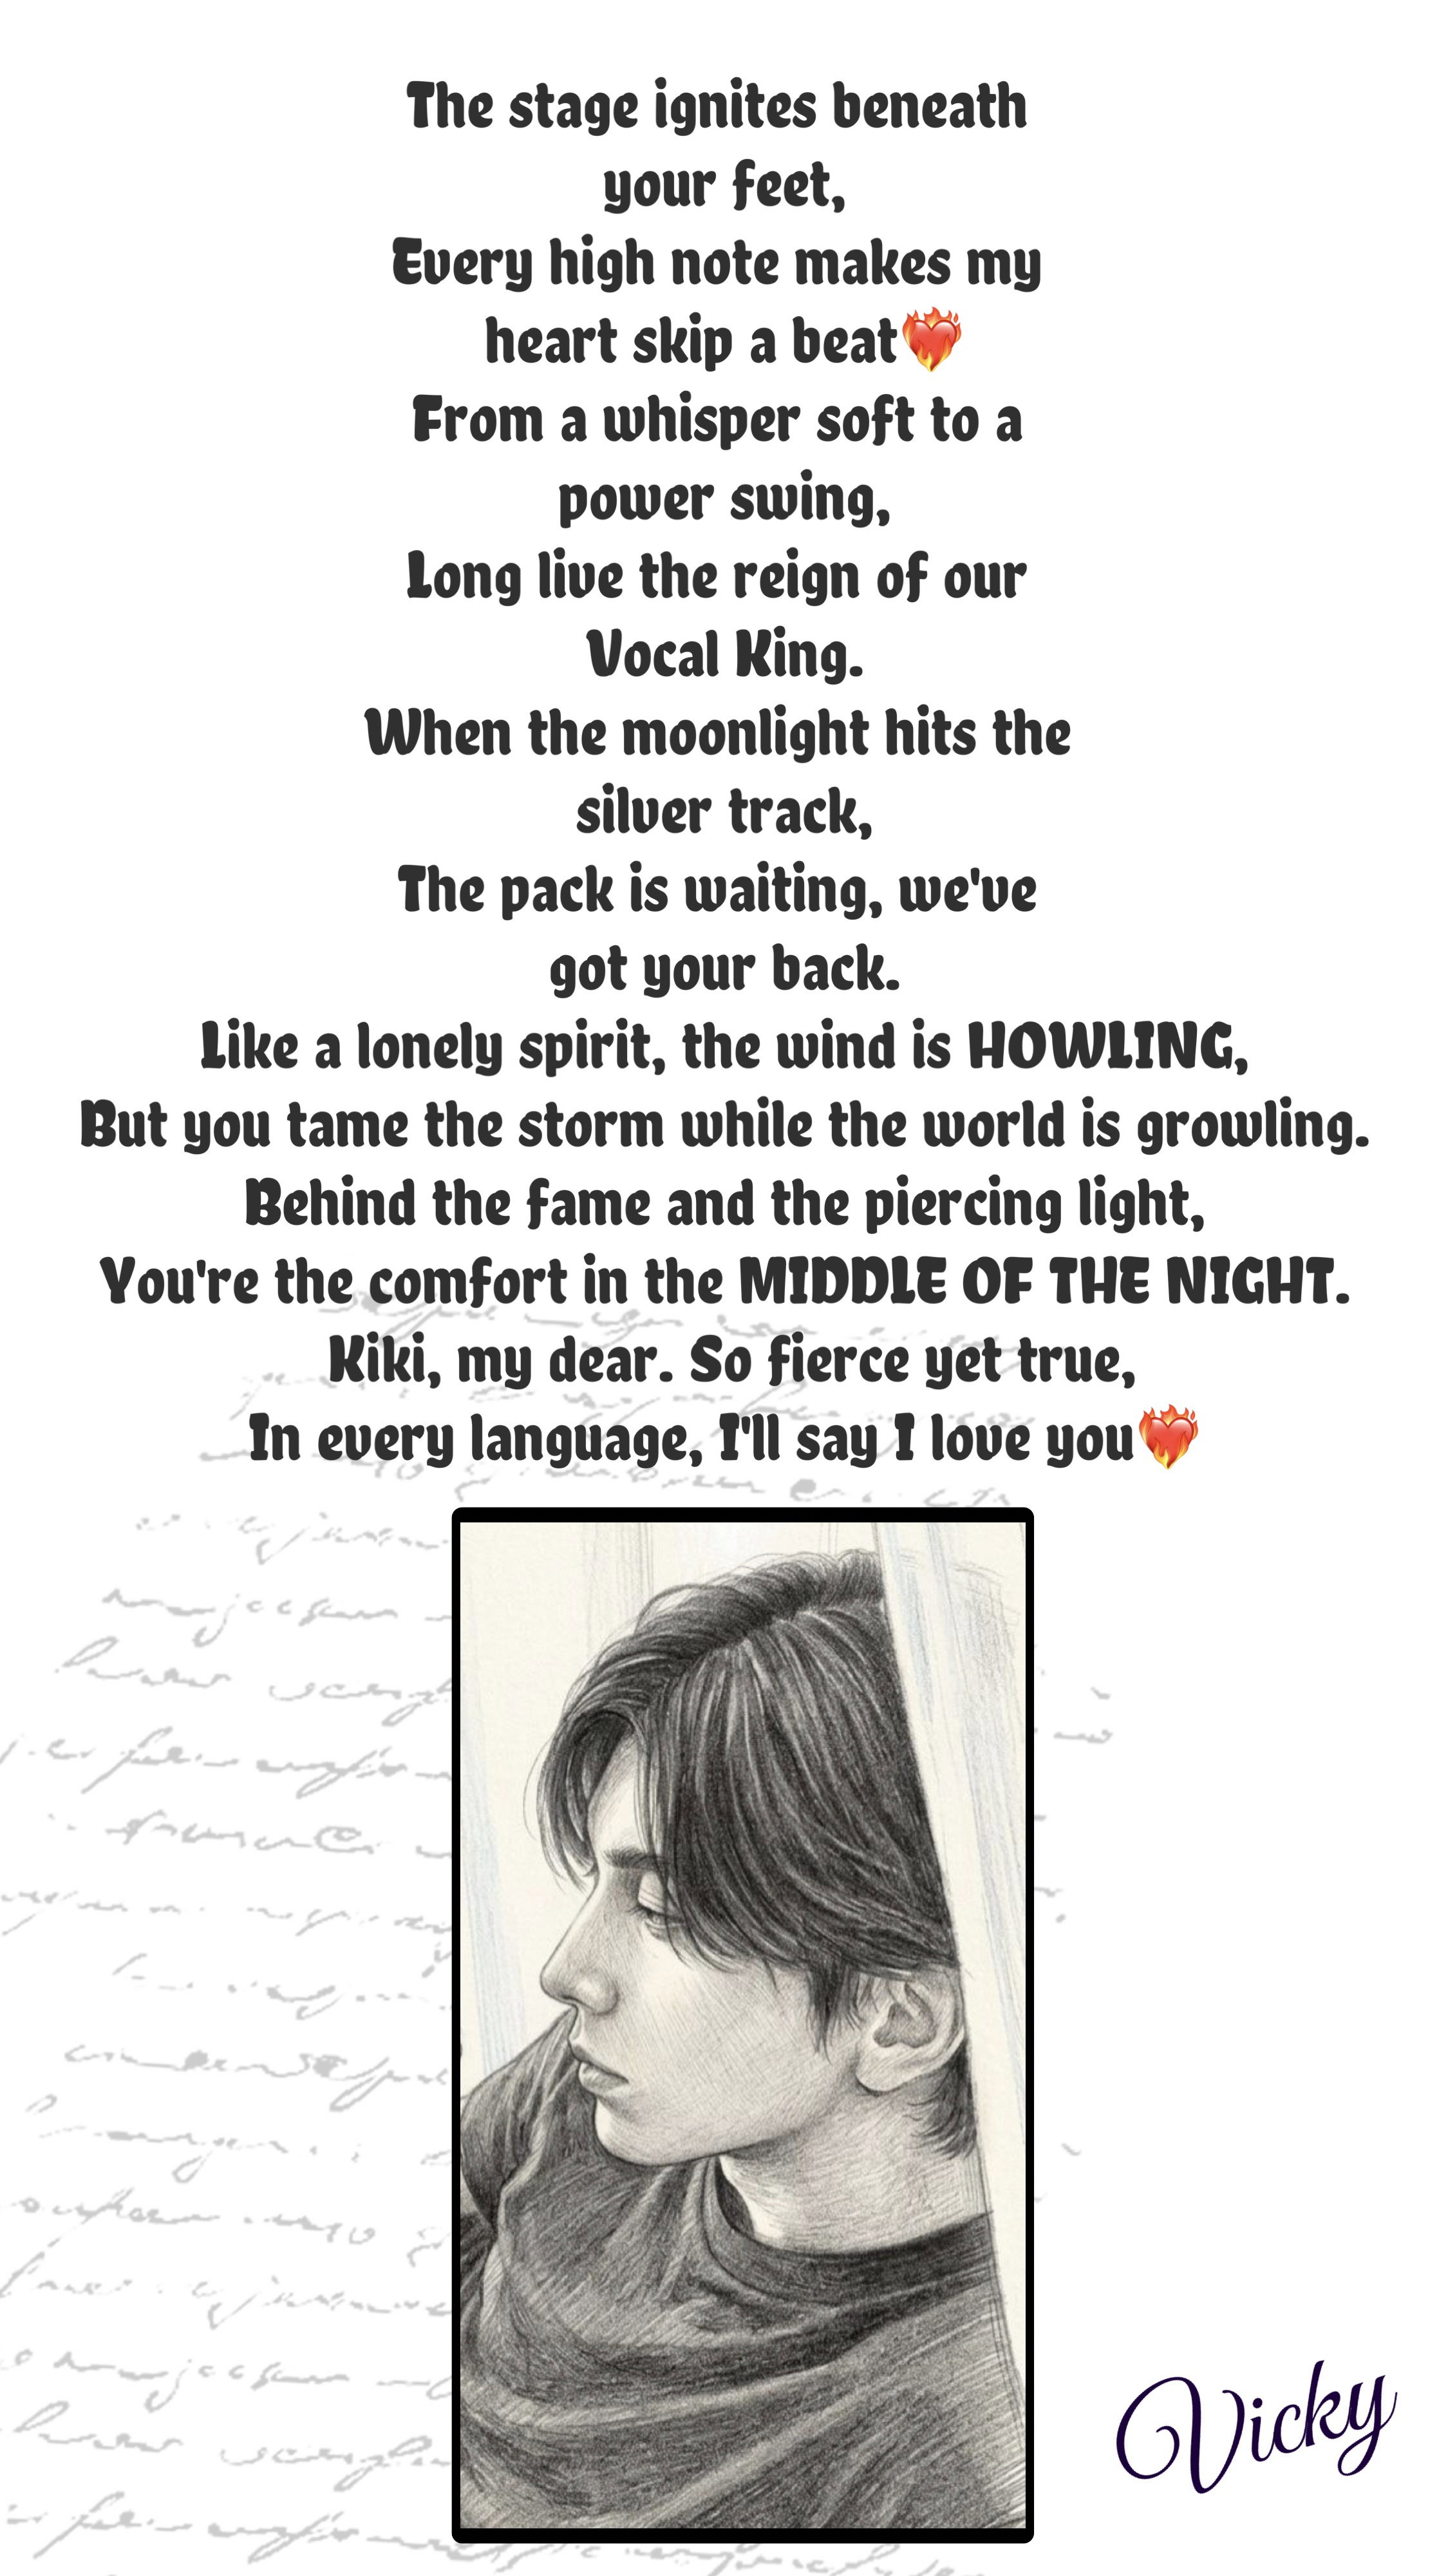 The stage ignites beneath
your feet,
Every high note makes my
heart skip a beat❤️‍🔥
From a whisper soft to a
power swing,
Long live the reign of our
Vocal King.
When the moonlight hits the
silver track,
The pack is waiting, we've
got your back.
Like a lonely spirit, the wind is HOWLING,
But you tame the storm while the world is growling.
Behind the fame and the piercing light,
You're the comfort in the MIDDLE OF THE NIGHT.
Kiki, my dear. So fierce yet true,
In every language, I'll say I love you❤️‍🔥
Vicky